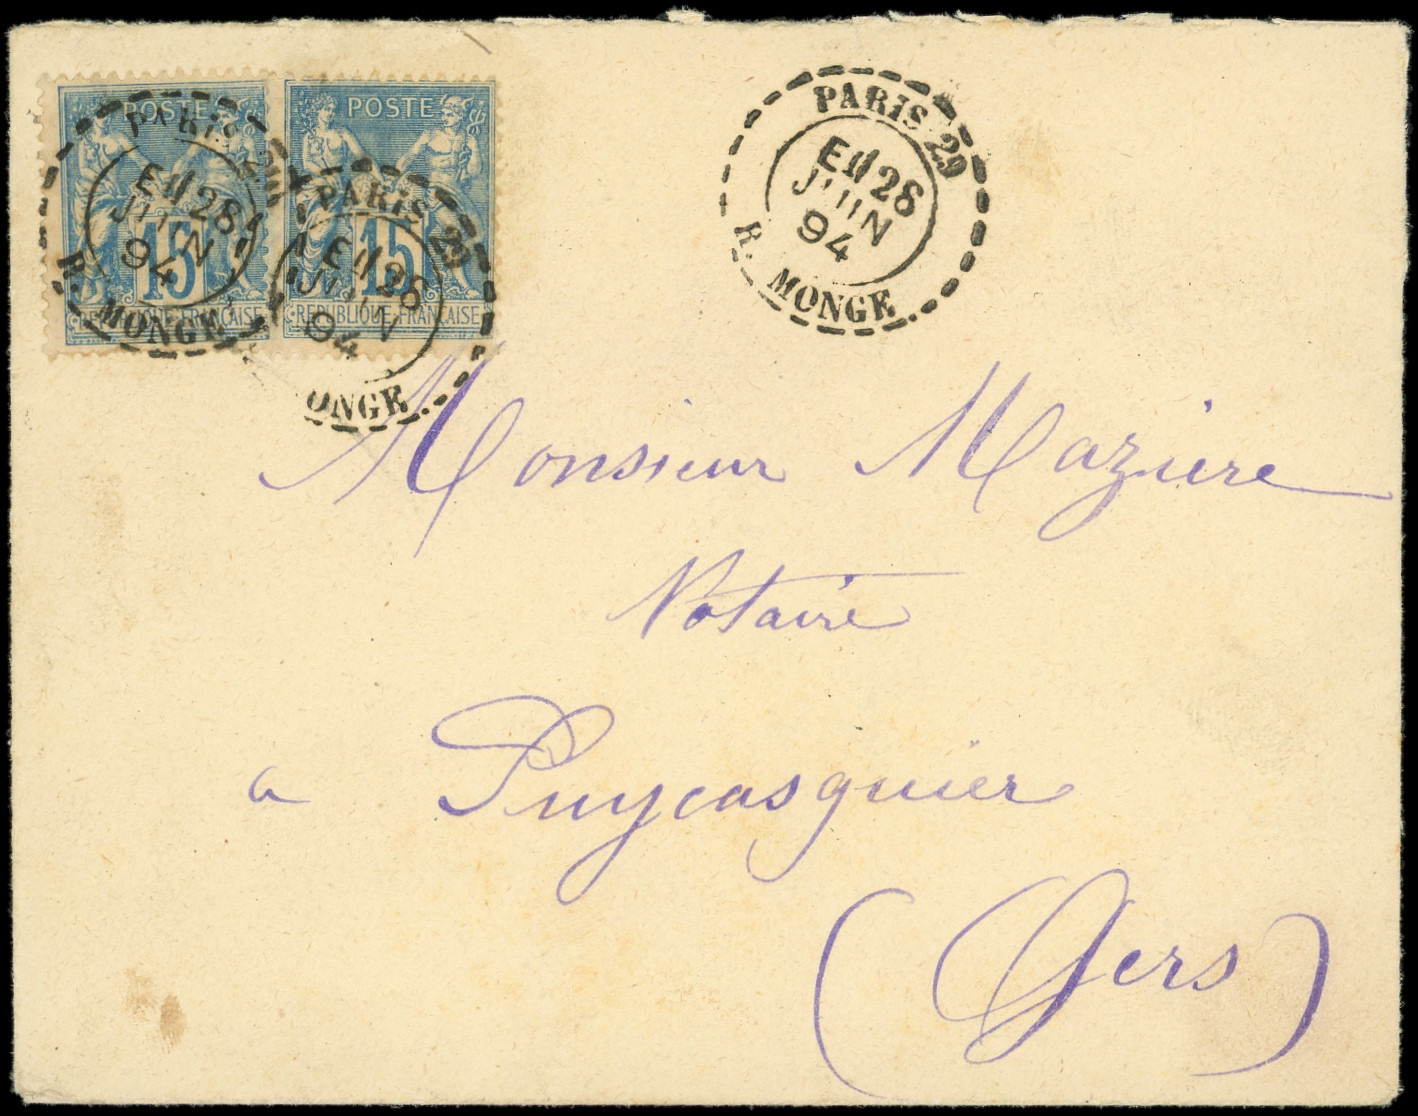 POSTE POSTE
15 15
REPUBLIQUE FRANÇAISE REPUBLIQUE FRANÇAISE
PARIS 29
28
JUIN
94
R. MONGE
PARIS 29
28
JUIN
94
ONGE
PARIS 29
28
JUIN
94
R. MONGE
Monsieur Maziere
Notaire
a Puycasquier
(Gers)